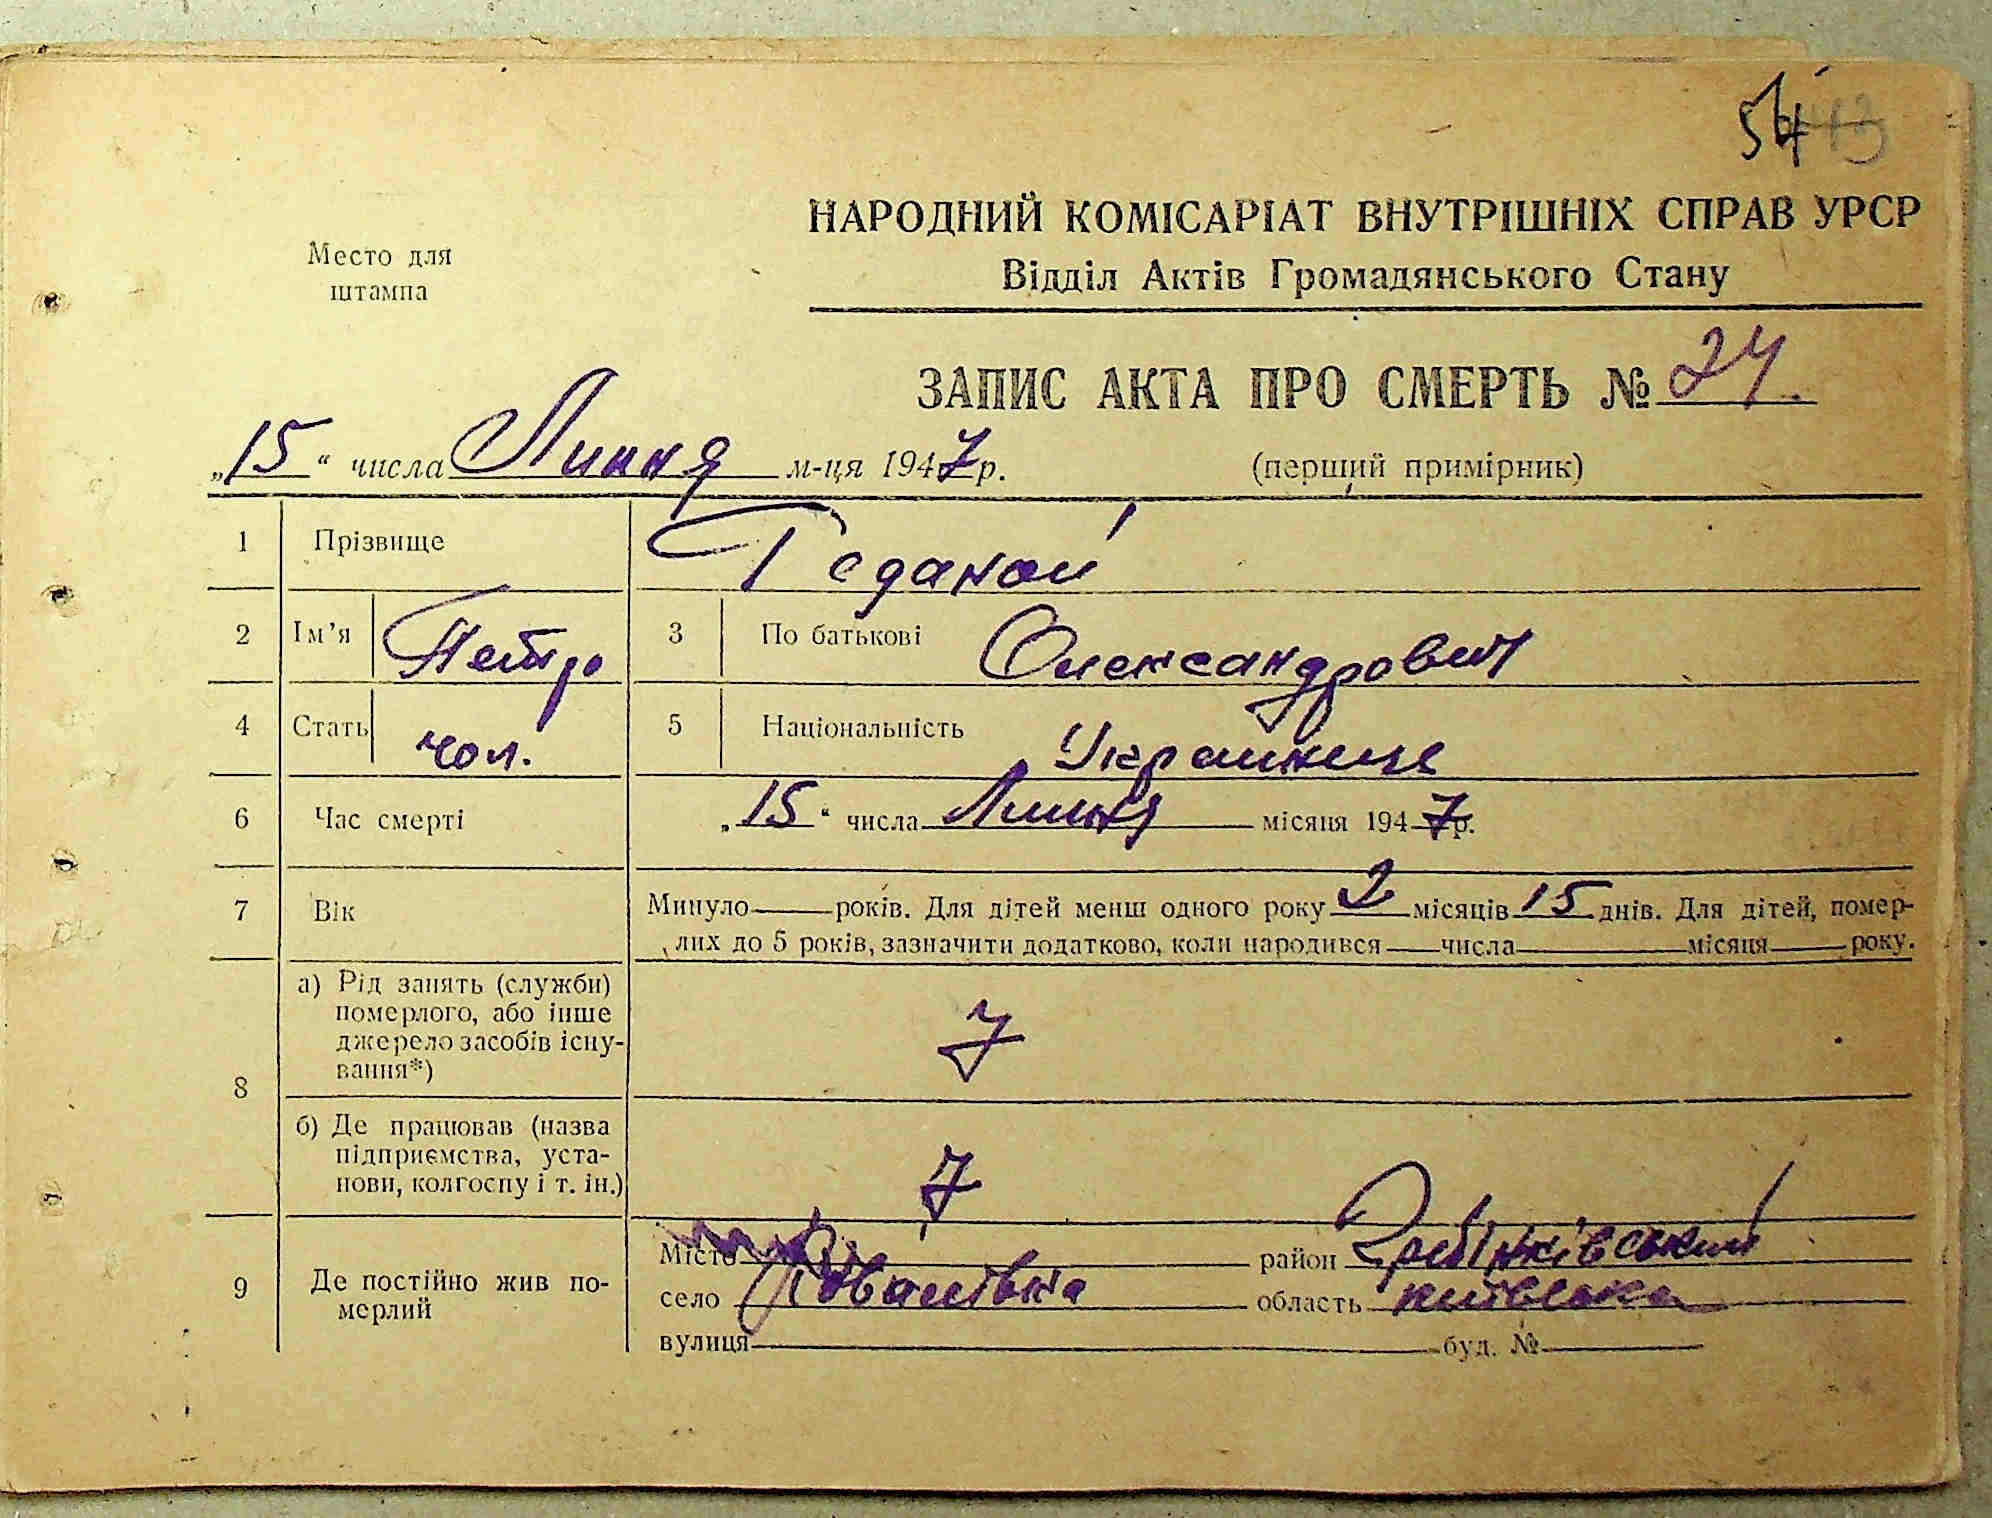 54
НАРОДНИЙ КОМІСАРІАТ ВНУТРІШНІХ СПРАВ УРСР
Место для
штампа
Відділ Актів Громадянського Стану
ЗАПИС АКТА ПРО СМЕРТЬ № 24.
„15“ числа Липня м-ця 1947 р.
(перший примірник)
1 Прізвище Геданой
2 Ім’я Петро 3 По батькові Олександрович
4 Стать чол. 5 Національність Українець
6 Час смерті „15“ числа Липня місяця 1947 р.
7 Вік Минуло — років. Для дітей менш одного року 2 місяців 15 днів. Для дітей, помер-
лих до 5 років, зазначити додатково, коли народився — числа — місяця — року.
8 а) Рід занять (служби)
померлого, або інше
джерело засобів існу-
вання*)
б) Де працював (назва
підприємства, уста-
нови, колгоспу і т. ін.)
9 Де постійно жив по-
мерлий
Місто район Гребінківський
село Ковалівка область Київська
вулиця — буд. № —